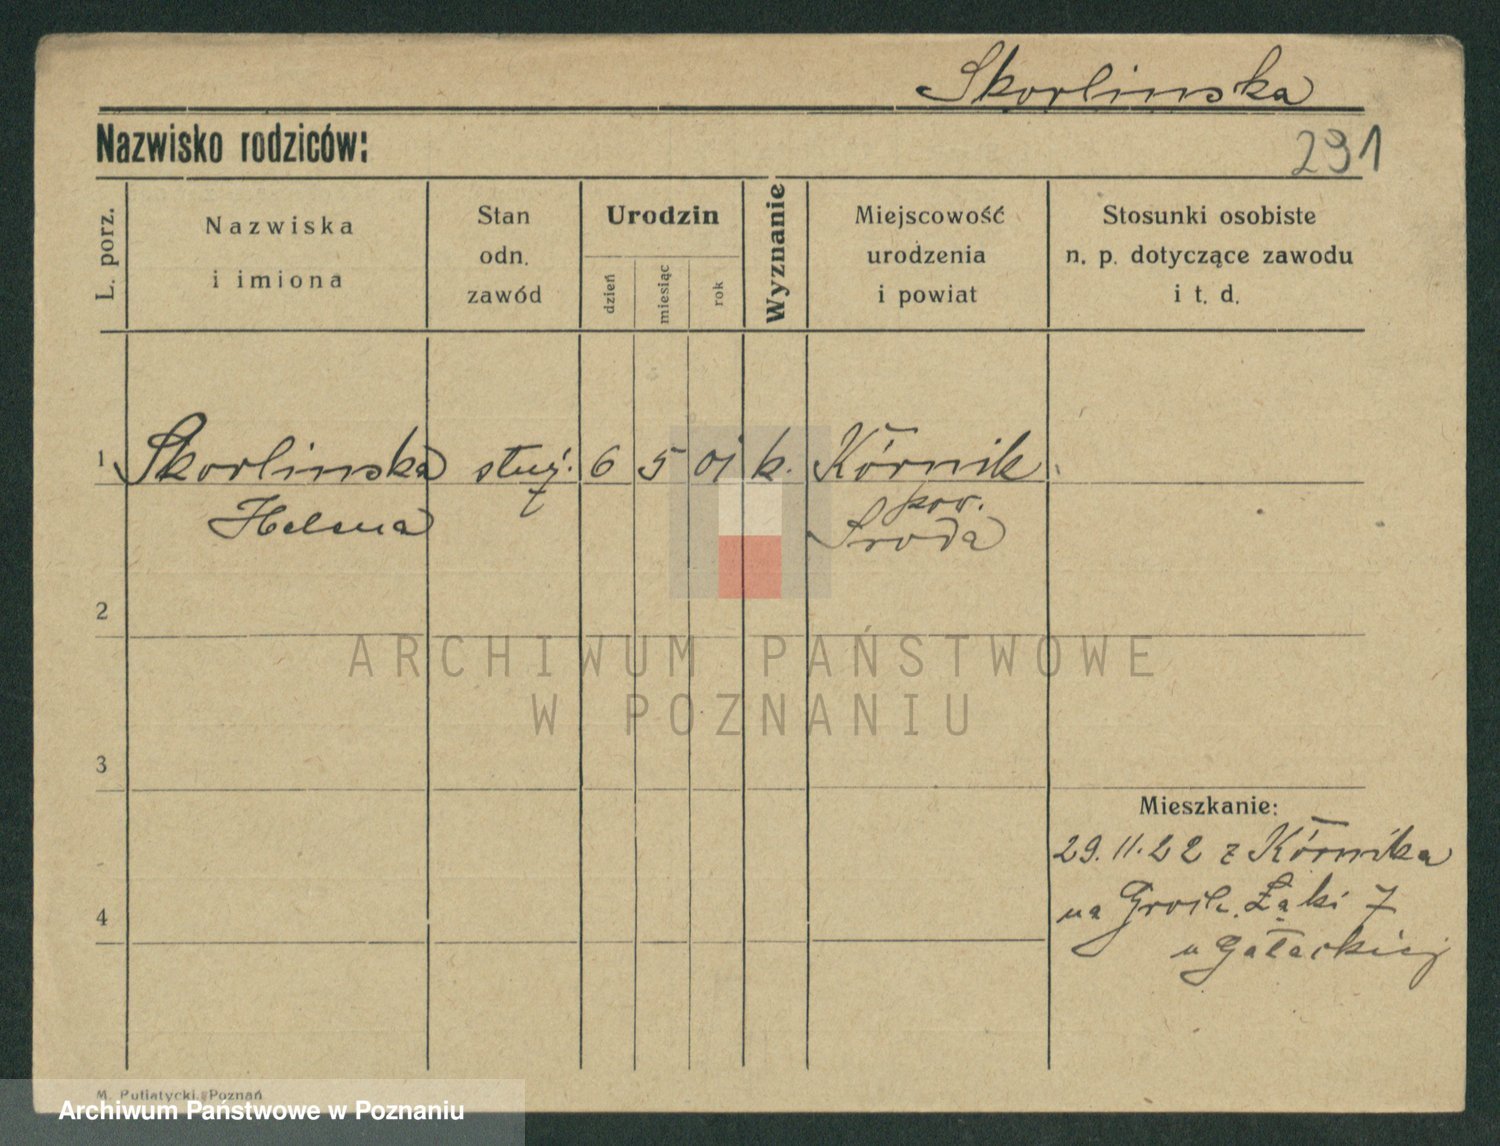 Skorlinska
Nazwisko rodziców:
291
L. porz.
Nazwiska
i imiona
Stan
odn.
zawód
Urodzin
dzień
miesiąc
rok
Wyznanie
Miejscowość
urodzenia
i powiat
Stosunki osobiste
n. p. dotyczące zawodu
i t. d.
1 Skorlinska służ. 6 5 01 k. Kórnik
Helena
pow.
Sroda
2
ARCHIWUM PAŃSTWOWE
W POZNANIU
3
Mieszkanie:
29.11.22 z Kórnika
na Grobl. Łąki 7
4
u Gałackiej
M. Putiatycki, Poznań
Archiwum Państwowe w Poznaniu